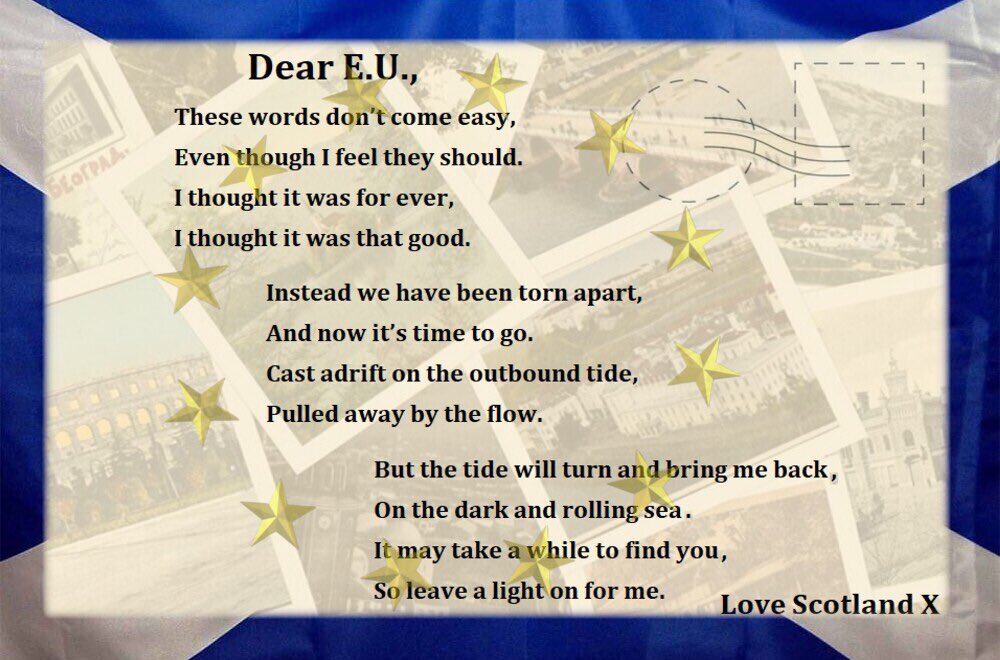 Dear E.U.,
These words don't come easy,
Even though I feel they should.
I thought it was for ever,
I thought it was that good.
Instead we have been torn apart,
And now it's time to go.
Cast adrift on the outbound tide,
Pulled away by the flow.
But the tide will turn and bring me back,
On the dark and rolling sea.
It may take a while to find you,
So leave a light on for me.
Love Scotland X